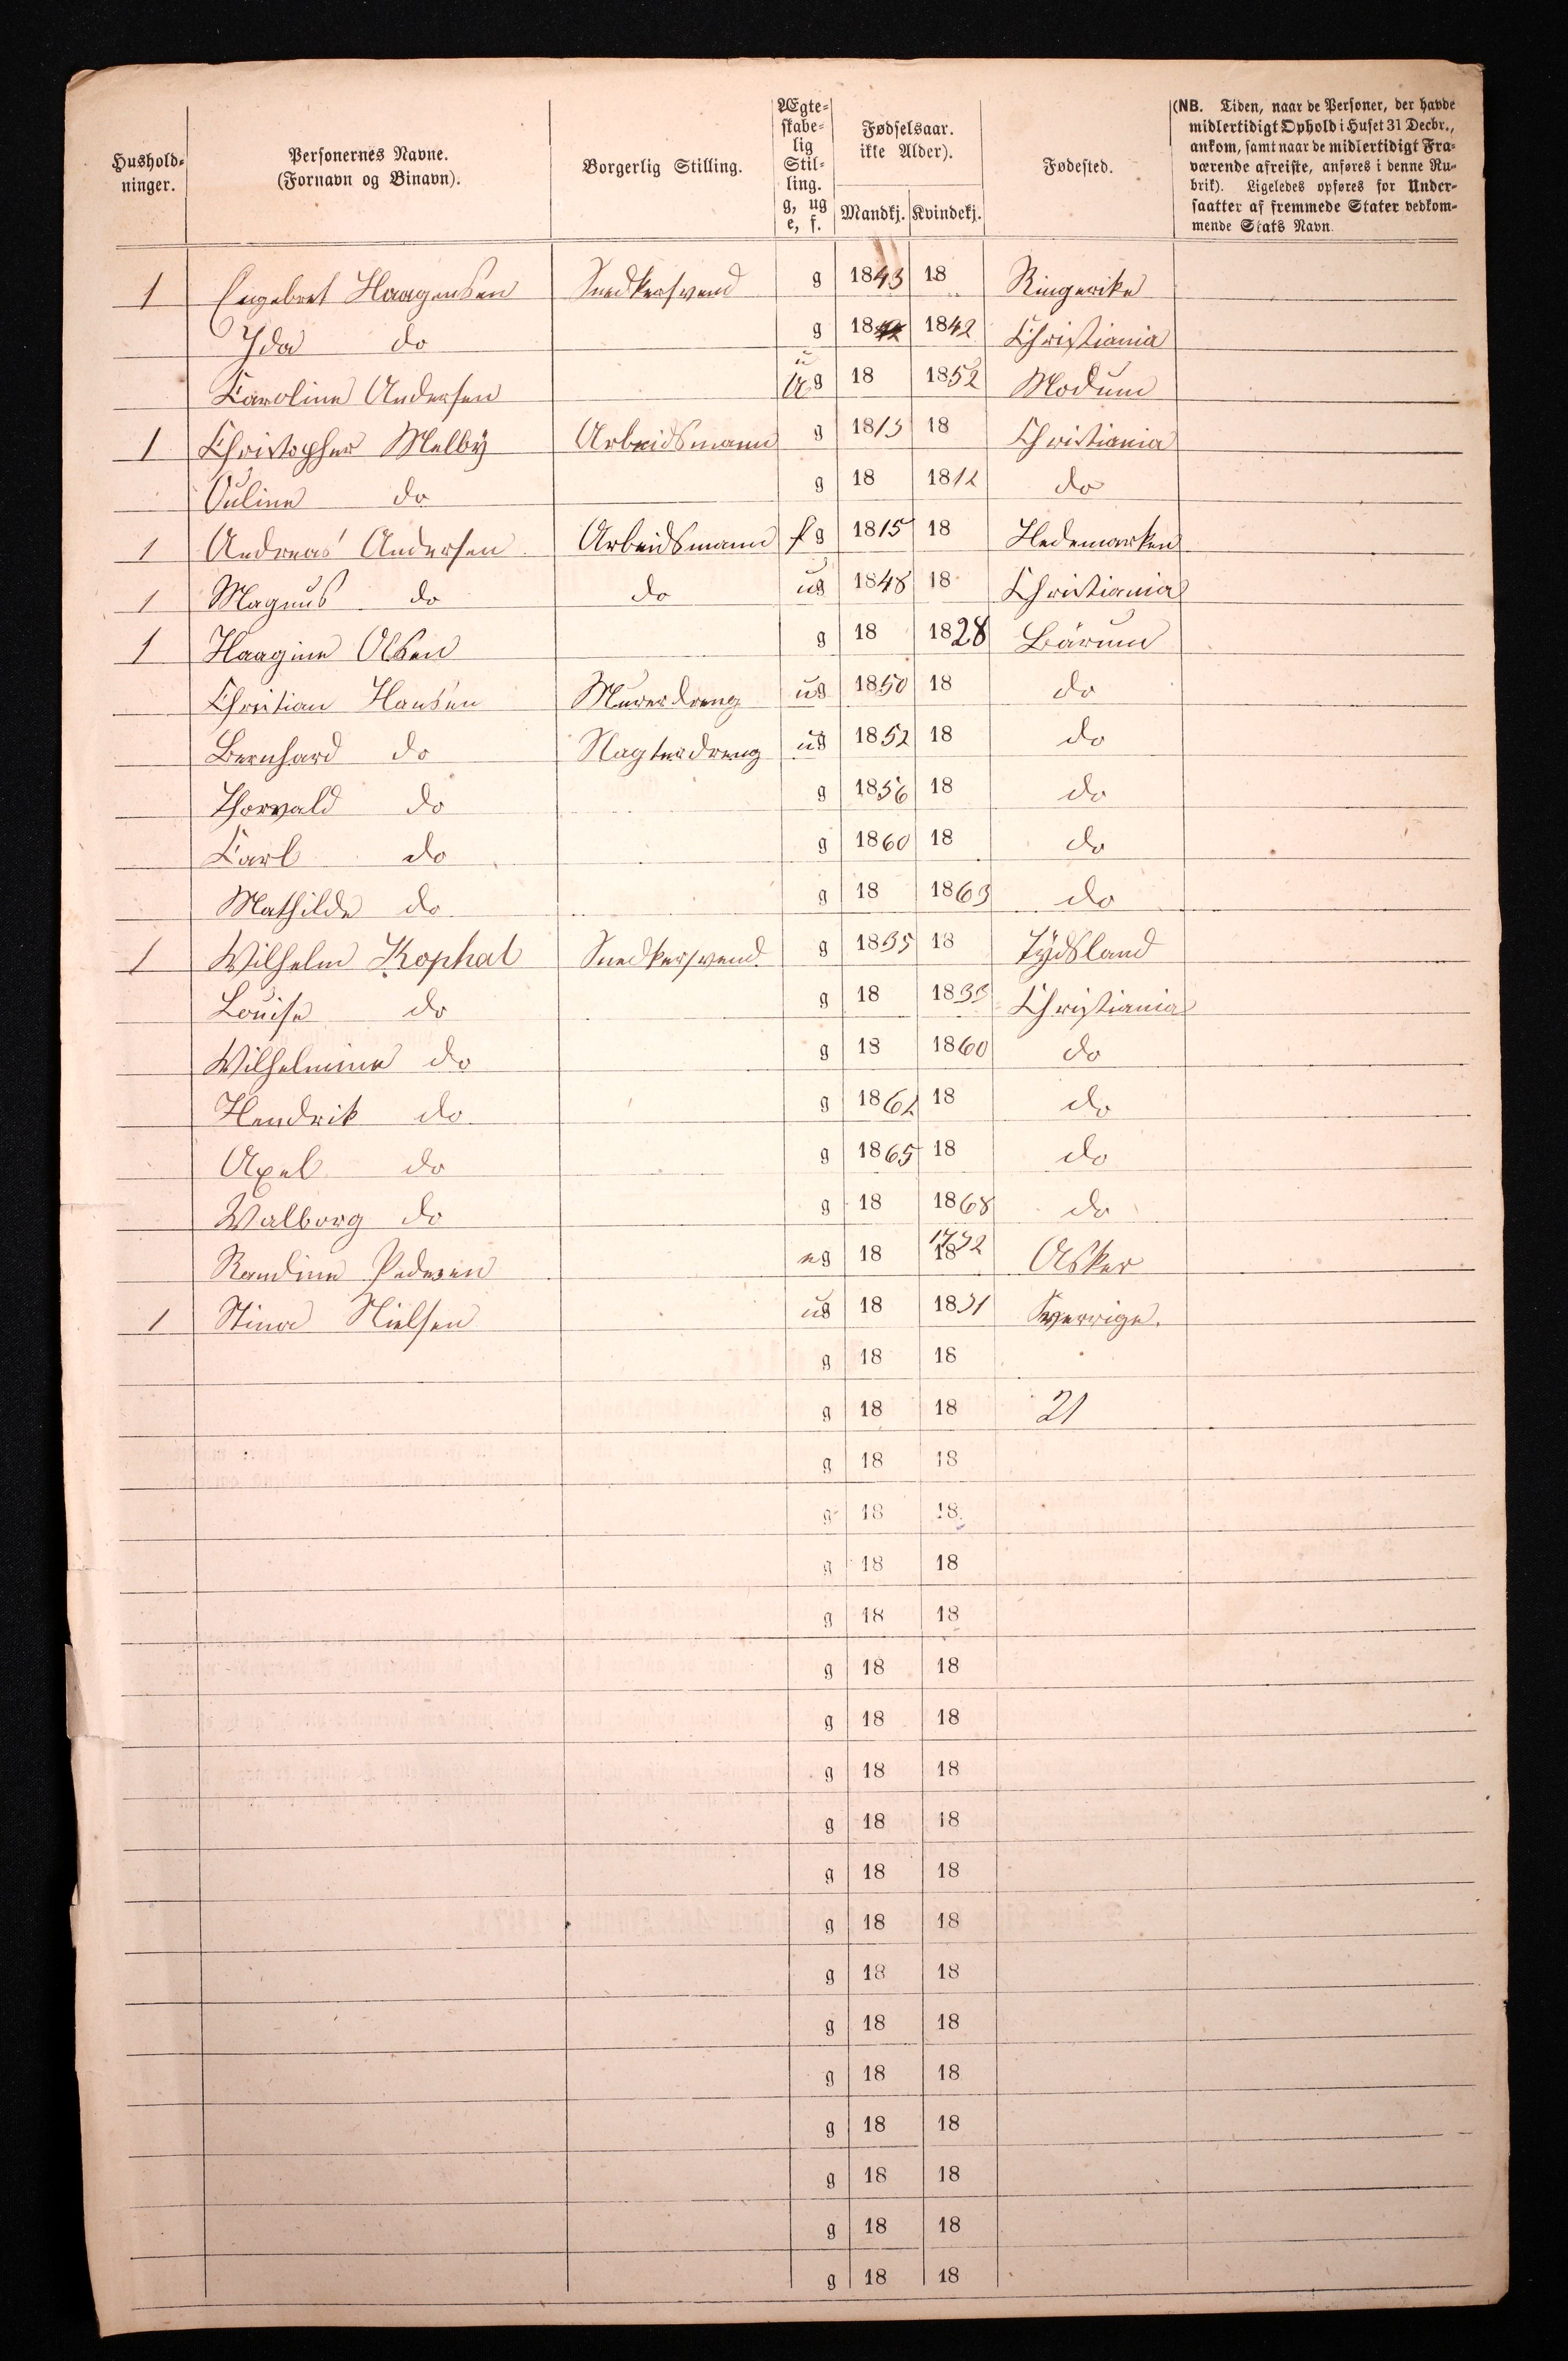 Hushold-
ninger.
Personernes Navne.
(Fornavn og Binavn).
Borgerlig Stilling.
Ægte-
skabe-
lig
Stil-
ling.
g, ug
e, f.
Fødselsaar.
ikke Alder).
Mandkj. Kvindekj.
Fødested.
(NB. Tiden, naar de Personer, der havde
midlertidigt Ophold i Huset 31 Decbr.,
ankom, samt naar de midlertidigt Fra-
værende afreiste, anføres i denne Ru-
brik). Ligeledes opføres for Under-
saatter af fremmede Stater vedkom-
mende Stats Navn.
1 Engebret Haagensen Snedkersvend g 1843 18 Ringerike
Ida do g 18 1842 Christiania
Caroline Andersen ug 18 1852 Modum
1 Christopher Melby Arbeidsmann g 1813 18 Christiania
Juline do g 18 1812 do
1 Andreas Andersen Arbeidsmann f g 1815 18 Hedemarken
1 Magnus do do ug 1848 18 Christiania
1 Haagine Olsen g 18 1828 Bärum
Christian Hansen Murerdreng ug 1850 18 do
Bernhard do Slagterdreng ug 1852 18 do
Thorvald do g 1856 18 do
Carl do g 1860 18 do
Mathilde do g 18 1863 do
1 Wilhelm Kophal Snedkersvend g 1835 18 Tydsland
Louise do g 18 1833 Christiania
Wilhelmine do g 18 1860 do
Hendrik do g 1862 18 do
Axel do g 1865 18 do
Walborg do g 18 1868 do
Randine Pedersen eg 18 18 1792 Asker
1 Stina Nielsen ug 18 1831 Sverrige.
g 18 18
g 18 18 21
g 18 18
g 18 18
g 18 18
g 18 18
g 18 18
g 18 18
g 18 18
g 18 18
g 18 18
g 18 18
g 18 18
g 18 18
g 18 18
g 18 18
g 18 18
g 18 18
g 18 18